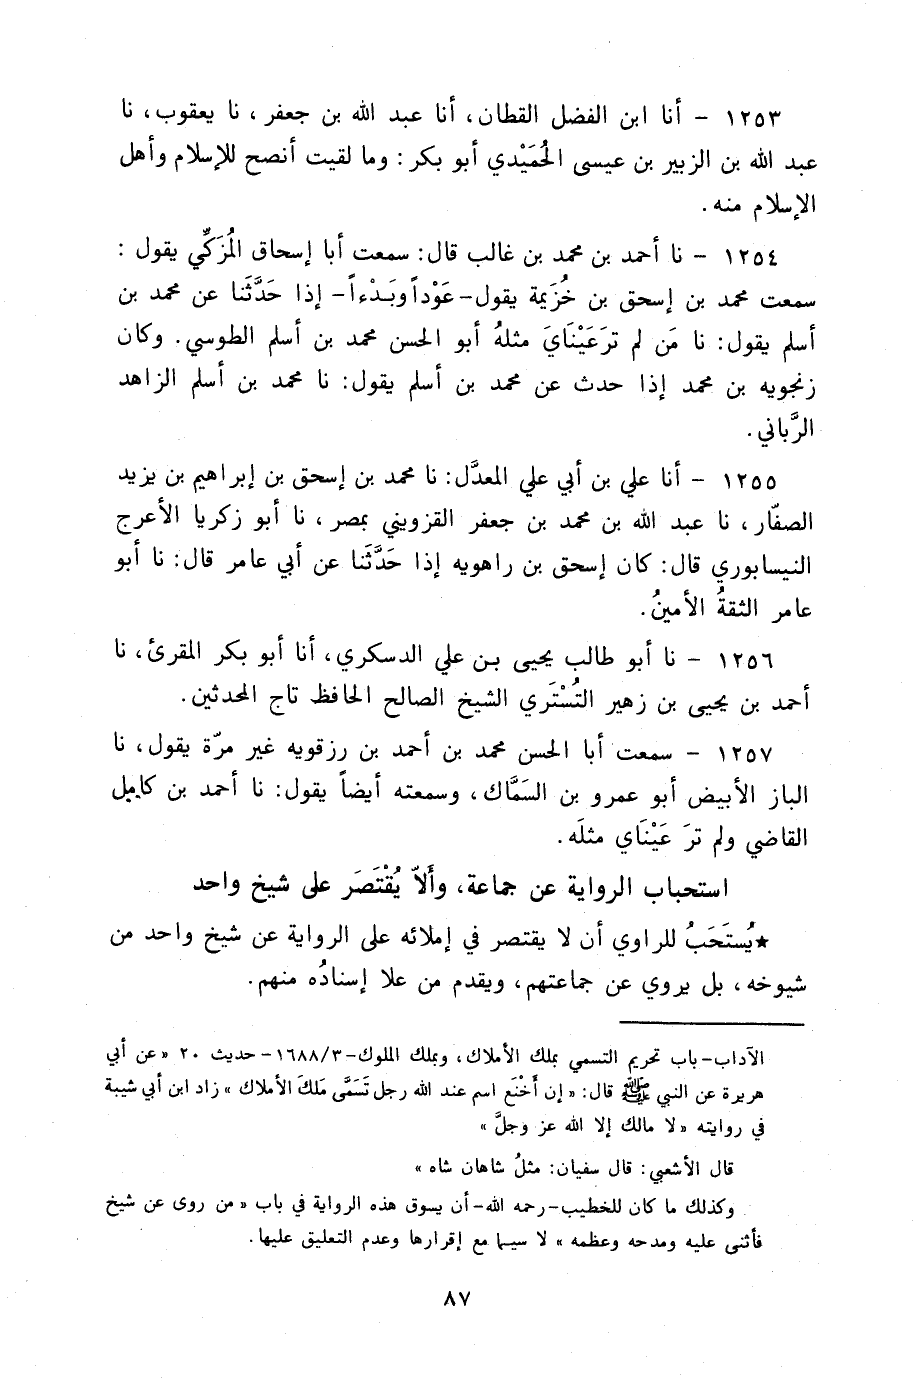 ١٢٥٣ - أنا ابن الفضل القطان، أنا عبد الله بن جعفر، نا يعقوب، نا
عبد الله بن الزبير بن عيسى الحُمَيْدي أبو بكر: وما لقيت أنصح للإسلام وأهل
الإسلام منه.
١٢٥٤ - نا أحمد بن محمد بن غالب قال: سمعت أبا إسحاق المُزَكِّي يقول:
سمعت محمد بن إسحق بن خُزَيمة يقول-عَوْداً وبَدْءاً-إذا حَدَّثَنا عن محمد بن
أسلم يقول: نا مَن لم ترَعَيْنَايَ مثلهُ أبو الحسن محمد بن أسلم الطوسي. وكان
زنجويه بن محمد إذا حدث عن محمد بن أسلم يقول: نا محمد بن أسلم الزاهد
الرَّباني.
١٢٥٥ - أنا علي بن أبي علي المعدَّل: نا محمد بن إسحق بن إبراهيم بن يزيد
الصفّار، نا عبد الله بن محمد بن جعفر القزويني بمصر، نا أبو زكريا الأعرج
النيسابوري قال: كان إسحق بن راهويه إذا حَدَّثَنا عن أبي عامر قال: نا أبو
عامر الثقةُ الأمينُ.
١٢٥٦ - نا أبو طالب يحيى بن علي الدسكري، أنا أبو بكر المقرئ، نا
أحمد بن يحيى بن زهير التُسْتَري الشيخ الصالح الحافظ تاج المحدثين.
١٢٥٧ - سمعت أبا الحسن محمد بن أحمد بن رزقويه غير مرّة يقول، نا
الباز الأبيض أبو عمرو بن السَمَّاك، وسمعته أيضاً يقول: نا أحمد بن كامل
القاضي ولم ترَ عَيْنَاي مثلَه.
استحباب الرواية عن جماعة، وأَلاّ يُقْتَصَر على شيخ واحد
★يُستَحَبُ للراوي أن لا يقتصر في إملائه على الرواية عن شيخ واحد من
شيوخه، بل يروي عن جماعتهم، ويقدم من علا إسنادُه منهم.
الآداب-باب تحريم التسمي بملك الأملاك، وبملك الملوك-١٦٨٨/٣-حديث ٢٠ «عن أبي
هريرة عن النبي ﷺ قال: «إن أَخْنَع اسم عند الله رجل تَسَمَّى مَلكَ الأملاك» زاد ابن أبي شيبة
في روايته «لا مالك إلا الله عز وجلَّ»
قال الأشعبي: قال سفيان: مثلُ شاهان شاه»
وكذلك ما كان للخطيب-رحمه الله-أن يسوق هذه الرواية في باب «من روى عن شيخ
فأثنى عليه ومدحه وعظمه» لا سيما مع إقرارها وعدم التعليق عليها.
٨٧